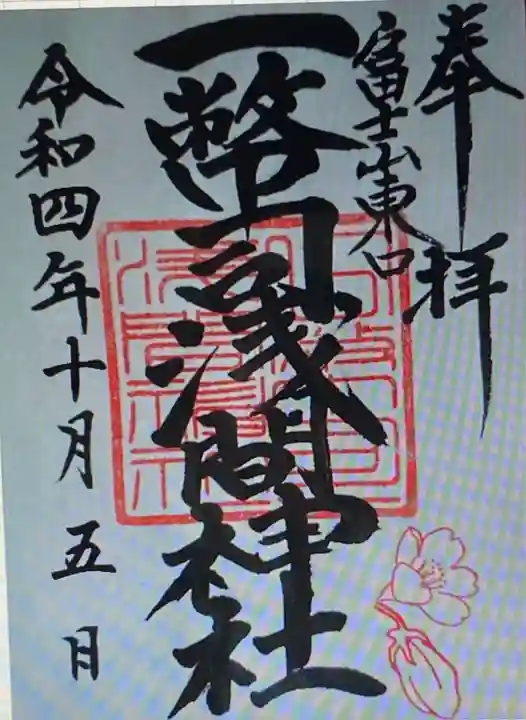 奉拝
富士山東口
一幣司浅間神社
令和四年十月五日